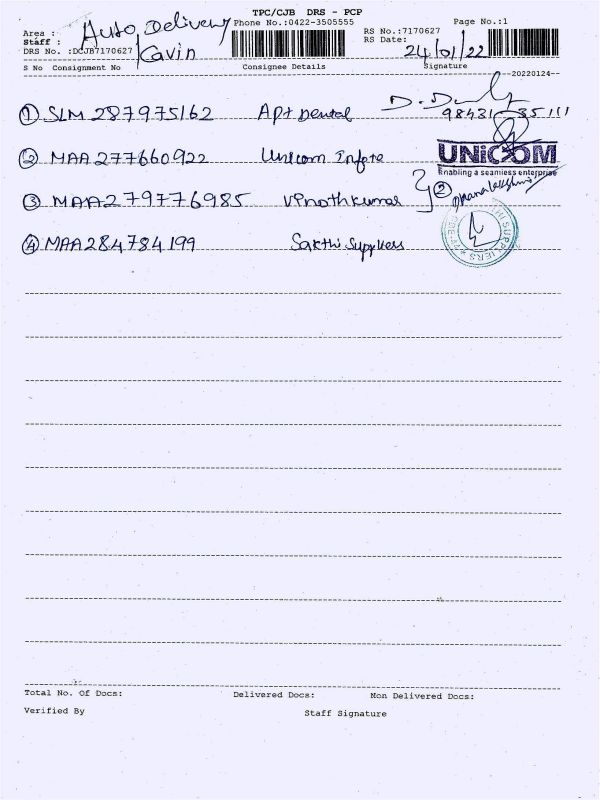 TPC/CJB DRS - PCP
Area : Auto Delivery Phone No.:0422-3505555 Page No.:1
Staff : Gavin RS No.:7170627
DRS No. :DCJB7170627 RS Date: 24/01/22
S No Consignment No Consignee Details Signature
--20220124--
① SLM 287975162 Apt Dental
98431 35111
② MAA 277660922 Unicom Infote UNiCOM
Enabling a seamless enterprise
③ MAA 279776985 Vinothkumar ② Dhanalakshmi
④ MAA 284784199 Sakthi Suppliers SUPPLIERS
Total No. Of Docs: Delivered Docs: Non Delivered Docs:
Verified By Staff Signature